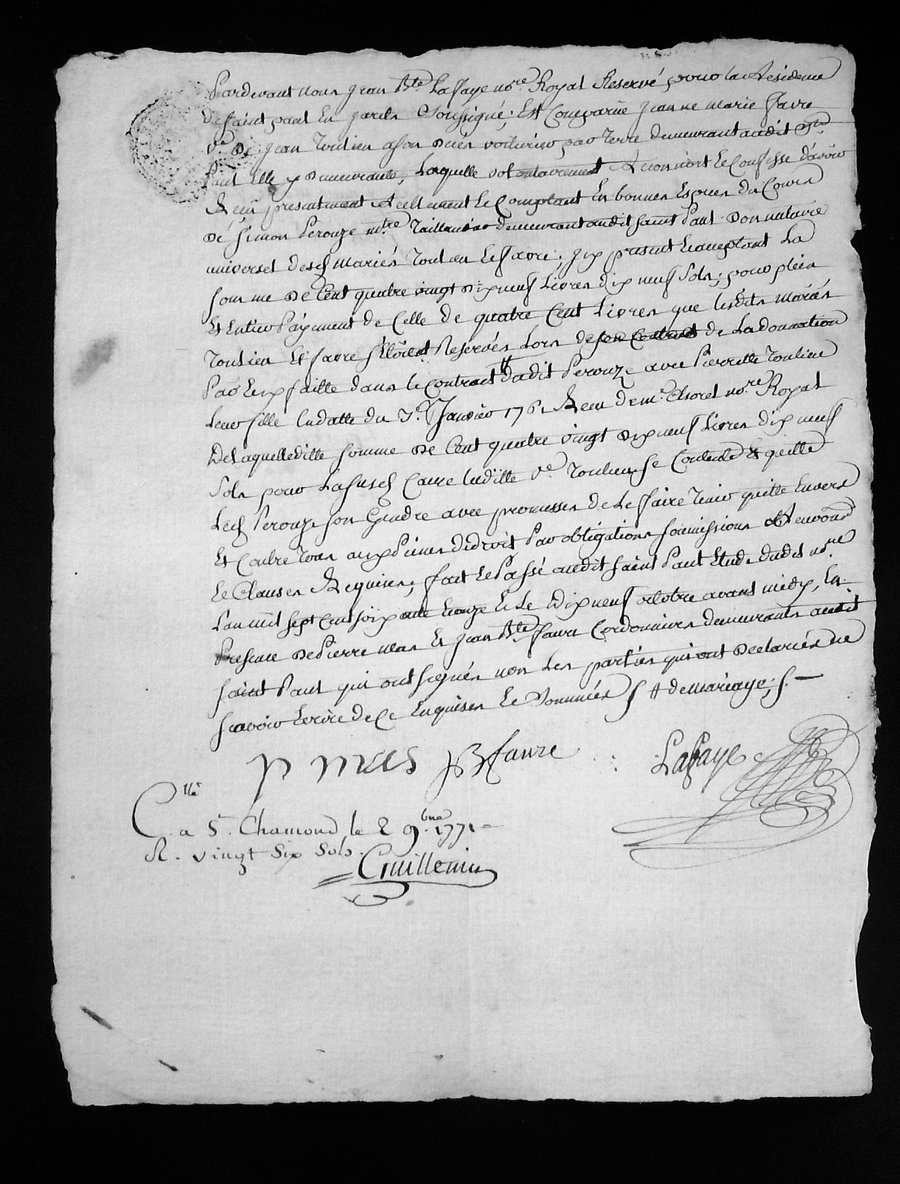 Pardevant nous Jean Bte Lafaye nre Royal Reservé, pour la Residence
de saint paul En jarets soussigné, Est Comparüe Jeanne marie favre
ve de Jean Toulieu a son vivant voiturier par terre demeurant audit St
Paul Elle y demeurante, Laquelle volontairement a reconnu et Confessé d'avoir
Reçu presentement Réellement et Comptant En bonnes Especes du Cours
de Simon Perouze mtre Taillandier demeurant audit saint Paul Donnataire
universel desdts mariés Toulieu et favre, icy present Exceptant La
somme de Cent quatre vingt dix neuf Livres dix neuf sols, pour plein
Et Entier Payement de Celle de quatre Cent Livres que lesdits mariés
Toulieu Et favre s'étoient Reservés Lors de la donnation
Par Eux faitte dans le Contract dudit Perouze avec Pierrette Toulieu
Leur fille En datte du 7e Janvier 176 Recu de me Thoret nore Royal
De Laquelle ditte somme de Cent quatre vingt dix neuf Livres dix neuf
Sols pour La susdte Cause laditte ve Toulieu se Contente & quitte
Ledt Perouze son Gendre avec promesses de Le faire Tenir quitte Envers
Et Contre Tous aux Peines de droit Par obligations soumissions et Renonons
et Clauses Requises, fait et Passé audit saint Paul Etude dudit nre
L'an mil sept cent soixante Et Le dix neuf octobre avant midy, En
Presence de Pierre Mas Et Jean Bte favre Cordonniers demeurants audit
saint Paul qui ont signés non Les parties qui ont Declarées ne
sçavoir Ecrire de Ce Enquises Et Sommées # de mariage
p mas JB favre Lafaye
C.llé a St Chamond le 2 9.bre 1771
R. vingt Six Sols.
Guillemin